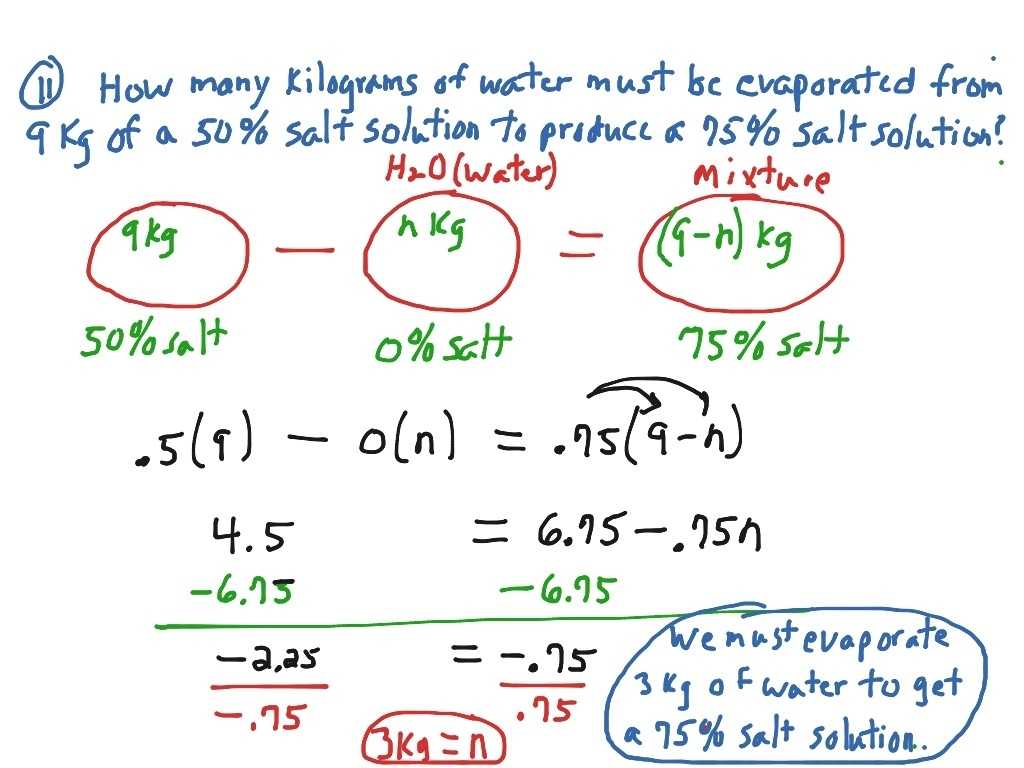 11 How many Kilograms of water must be evaporated from
9 Kg of a 50% salt solution to produce a 75% salt solution?
H2O (water) Mixture
9 kg — n Kg = (9-n) kg
50% salt 0% salt 75% salt
.5(9) — 0(n) = .75(9-n)
4.5 = 6.75 - .75n
-6.75 -6.75
-2.25 = -.75
-.75 .75
3Kg = n
We must evaporate
3 Kg of water to get
a 75% salt solution.